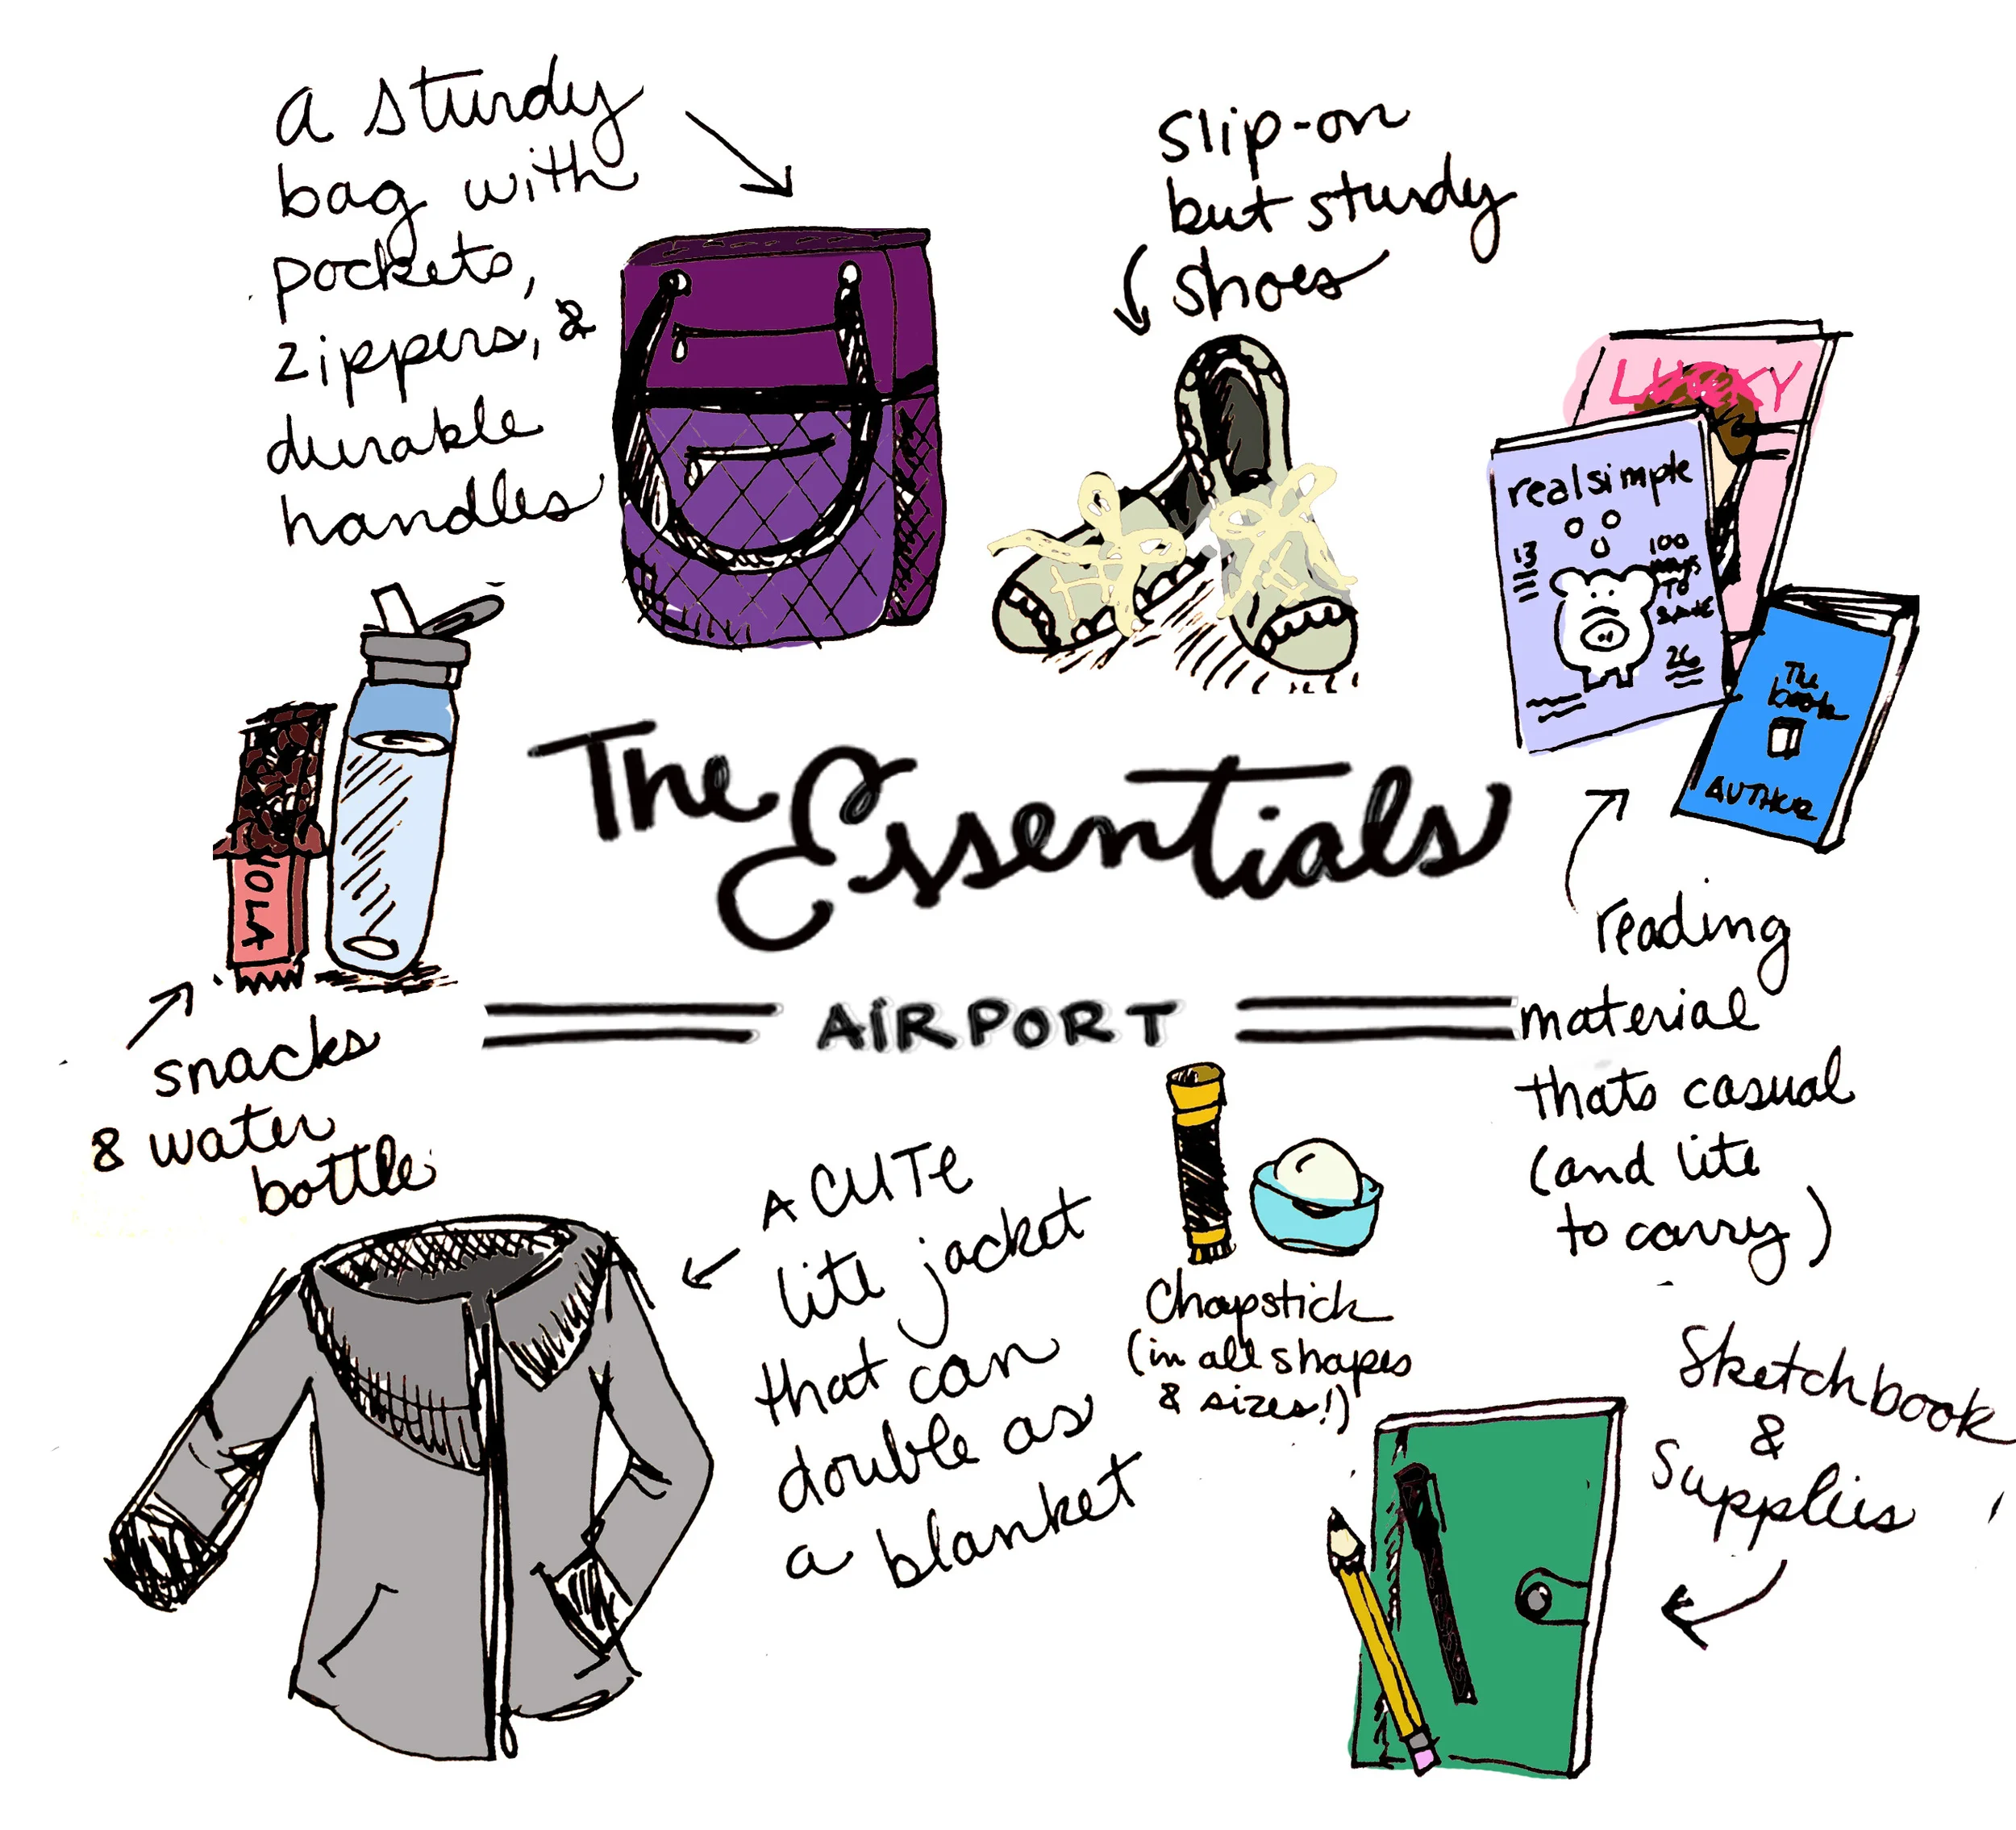 a sturdy
bag with
pockets,
zippers, &
durable
handles
slip-on
but sturdy
shoes
LUCKY
realsimple
13
100
ways
TO
SAVE
26
The
book
AUTHOR
The Essentials
AIRPORT
OLA
snacks
& water
bottle
reading
material
thats casual
(and lite
to carry)
A CUTE
lite jacket
that can
double as
a blanket
Chapstick
(in all shapes
& sizes!)
Sketchbook
&
Supplies